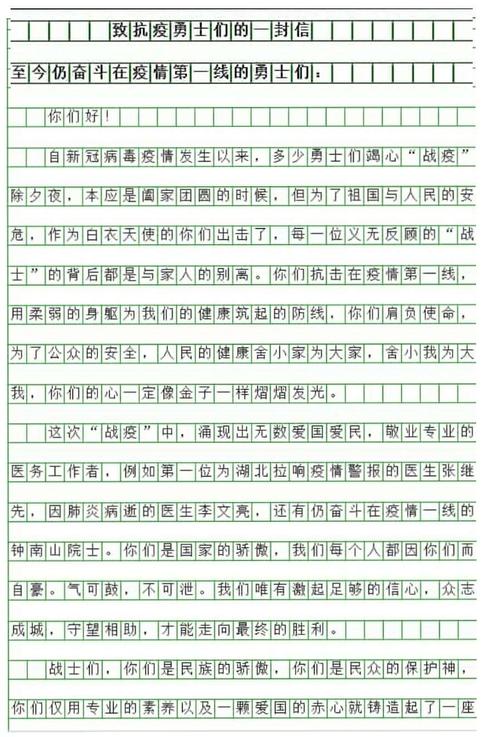 致抗疫勇士们的一封信
至今仍奋斗在疫情第一线的勇士们：
你们好！
自新冠病毒疫情发生以来，多少勇士们竭心“战疫”
除夕夜，本应是阖家团圆的时候，但为了祖国与人民的安
危，作为白衣天使的你们出击了，每一位义无反顾的“战
士”的背后都是与家人的别离。你们抗击在疫情第一线，
用柔弱的身躯为我们的健康筑起的防线，你们肩负使命，
为了公众的安全，人民的健康舍小家为大家，舍小我为大
我，你们的心一定像金子一样熠熠发光。
这次“战疫”中，涌现出无数爱国爱民，敬业专业的
医务工作者，例如第一位为湖北拉响疫情警报的医生张继
先，因肺炎病逝的医生李文亮，还有仍奋斗在疫情一线的
钟南山院士。你们是国家的骄傲，我们每个人都因你们而
自豪。气可鼓，不可泄。我们唯有激起足够的信心，众志
成城，守望相助，才能走向最终的胜利。
战士们，你们是民族的骄傲，你们是民众的保护神，
你们仅用专业的素养以及一颗爱国的赤心就铸造起了一座